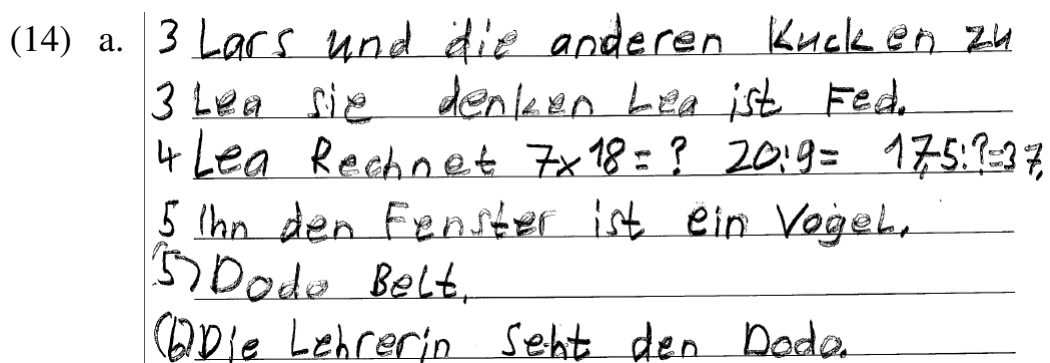 (14) a. 3 Lars und die anderen Kucken zu
3 Lea sie denken Lea ist Fed.
4 Lea Rechnet 7x18=? 20:9= 17,5:?=37,
5 Ihn den Fenster ist ein Vogel.
(5) Dodo Belt.
(6) Die Lehrerin Seht den Dodo.